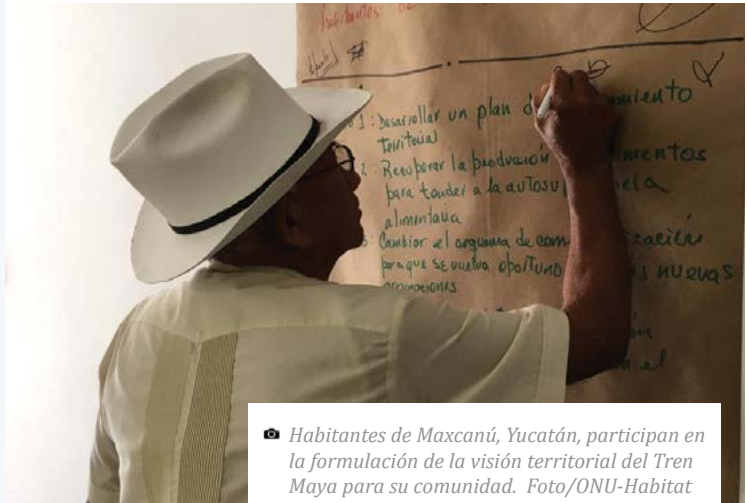 habitantes de
1: Desarrollar un plan de
Territorial
2: Recuperar la producción
para tender a la
alimentaria
3: Cambiar el esquema de
para que se vuelva oportuno nuevas
generaciones
el
Habitantes de Maxcanú, Yucatán, participan en
la formulación de la visión territorial del Tren
Maya para su comunidad. Foto/ONU-Habitat